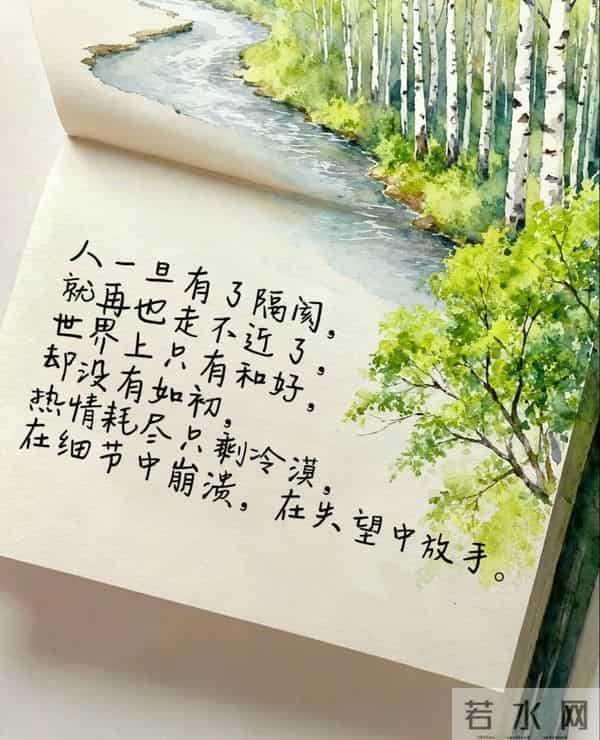 人一旦有了隔阂，
就再也走不近了，
世界上只有和好，
却没有如初，
热情耗尽只剩冷漠，
在细节中崩溃，在失望中放手。
若水网